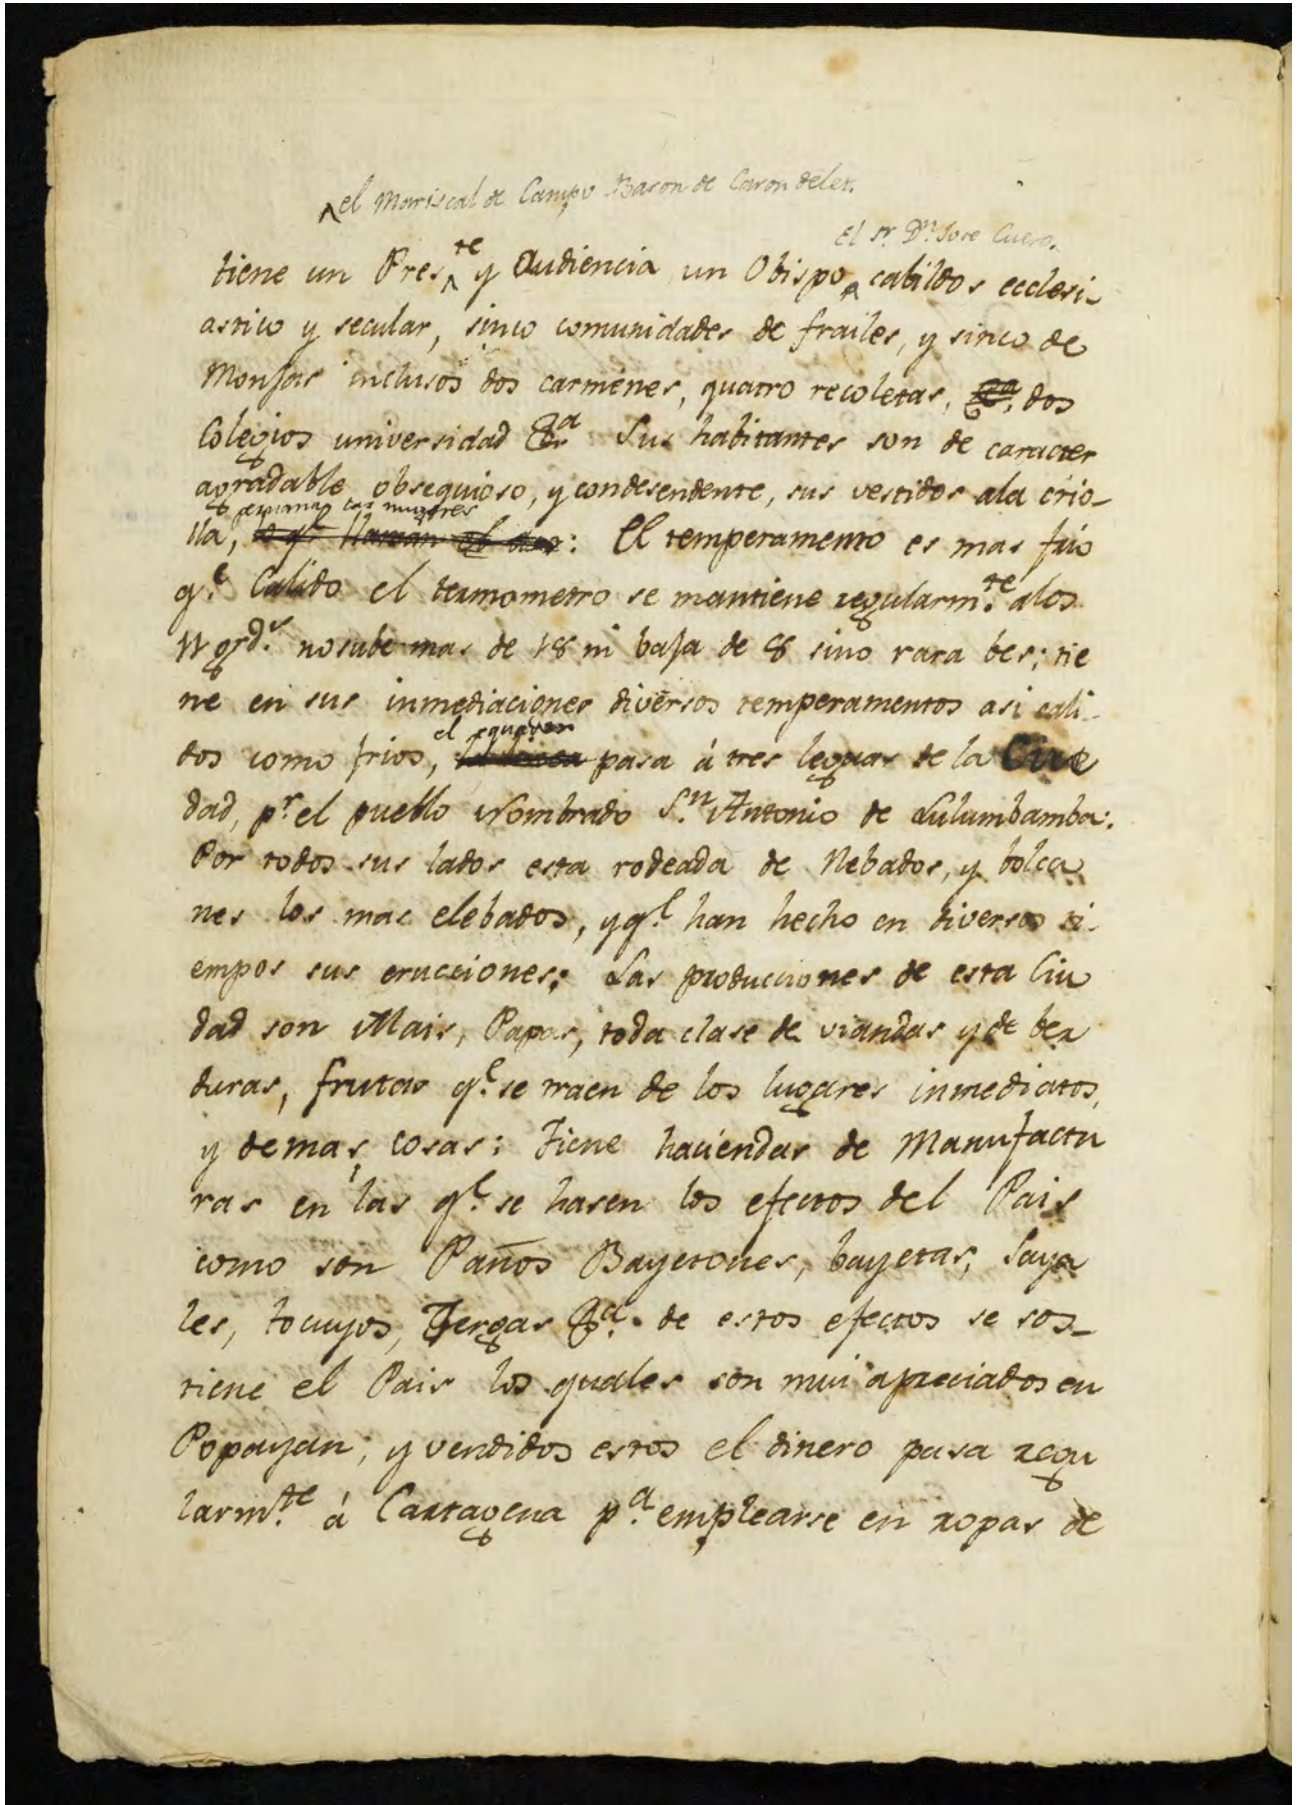 el Mariscal de Campo Baron de Carondelet.
el Sr. Dn. Jose Cuero.
tiene un Preste y Audiencia un Obispo cabildos ecclesi-
astico y secular, sinco comunidades de frailes, y sinco de
Monjas inclusos dos carmenes, quatro recoletas, &a. dos
Colegios universidad &a Sus habitantes son de caracter
agradable obsequioso, y condesendente, sus vestidos ala crio-
las mugeres
lla, lo qe. llaman el: El temperamento es mas frio
qe. Calido el termometro se mantiene regularmte. alos
11 grds. no sube mas de 18 ni baja de 8 sino rara bes; tie
ne en sus inmediaciones diversos temperamentos asi cali-
el equator
dos como frios, la linea pasa á tres leguas de la Ciu
dad, pr. el pueblo Nombrado Sn. Antonio de Lulumbamba:
Por todos sus lados esta rodeada de Nebados, y bolca
nes los mas elebados, y qe. han hecho en diversos ti-
empos sus erucciones; Las producciones de esta Ciu
dad son Mais, Papas, toda clase de viandas y de ber
duras, frutas qe. se traen de los lugares inmediatos,
y demas cosas: Tiene haciendas de Manufactu
ras en las qe. se hasen los efectos del Pais
como son Paños Bayetones, bayetas, Saya
les, tocuyos, Jergas &a. de estos efectos se sos-
tiene el Pais los quales son mui apreciados en
Popayan; y vendidos estos el dinero pasa regu
larmte. á Cartagena pa. emplearse en ropas de